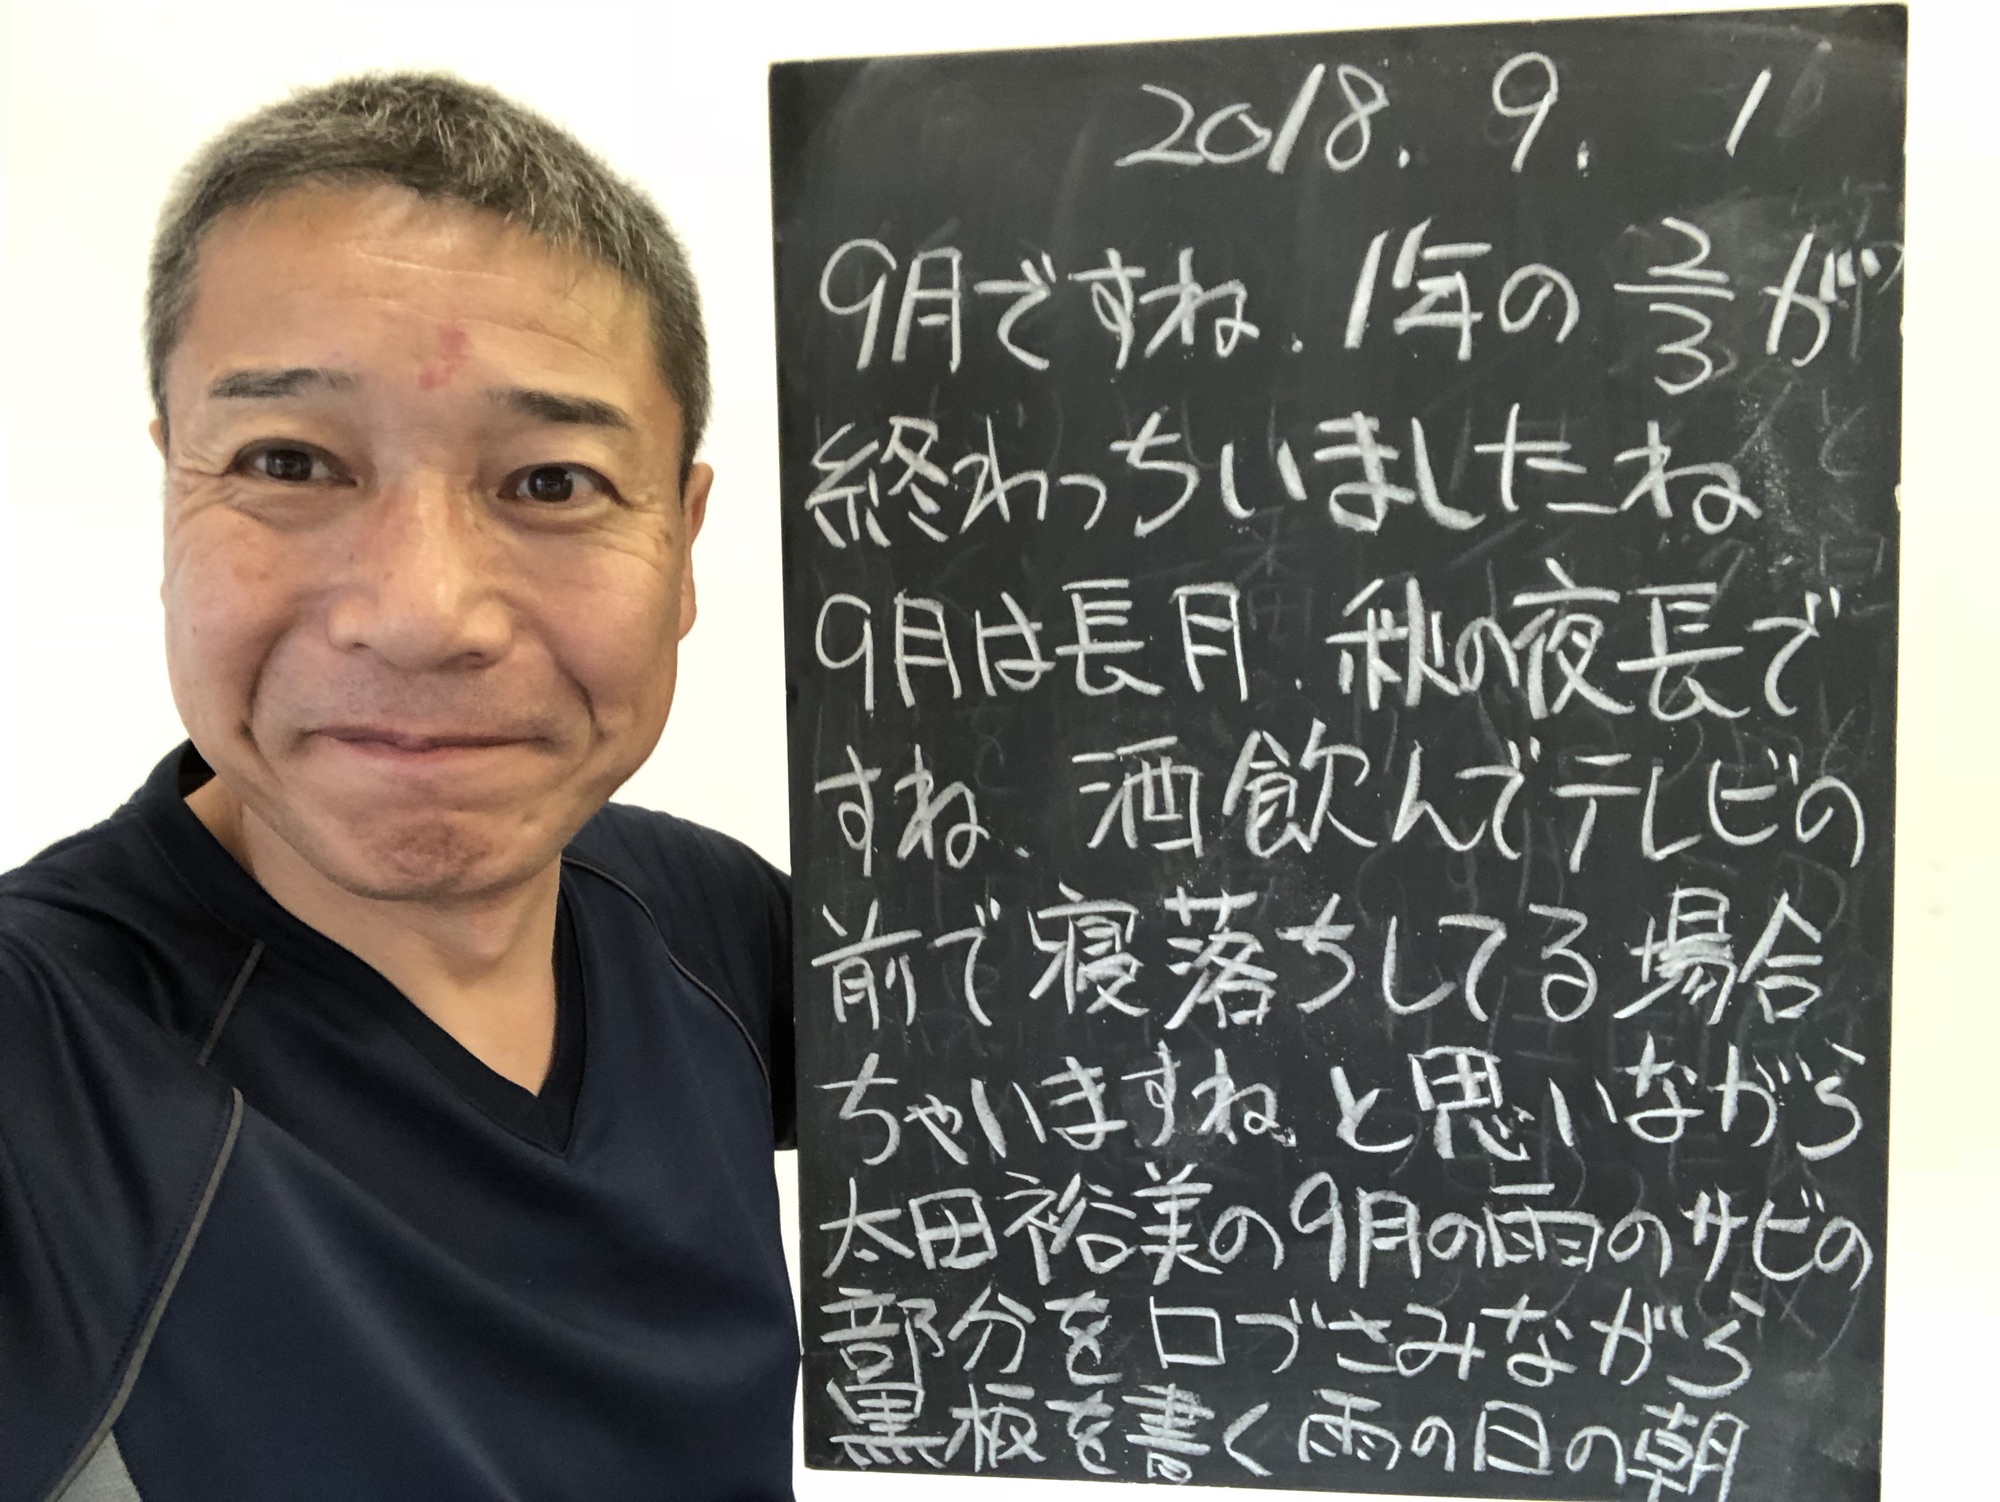 2018. 9. 1
9月ですね.1年の2/3が
終わっちいましたね
9月は長月.秋の夜長で
すね、酒飲んでテレビの
前で寝落ちしてる場合
ちゃいますね と思いながら
太田裕美の9月の雨のサビの
部分を口づさみながら
黒板を書く雨の日の朝